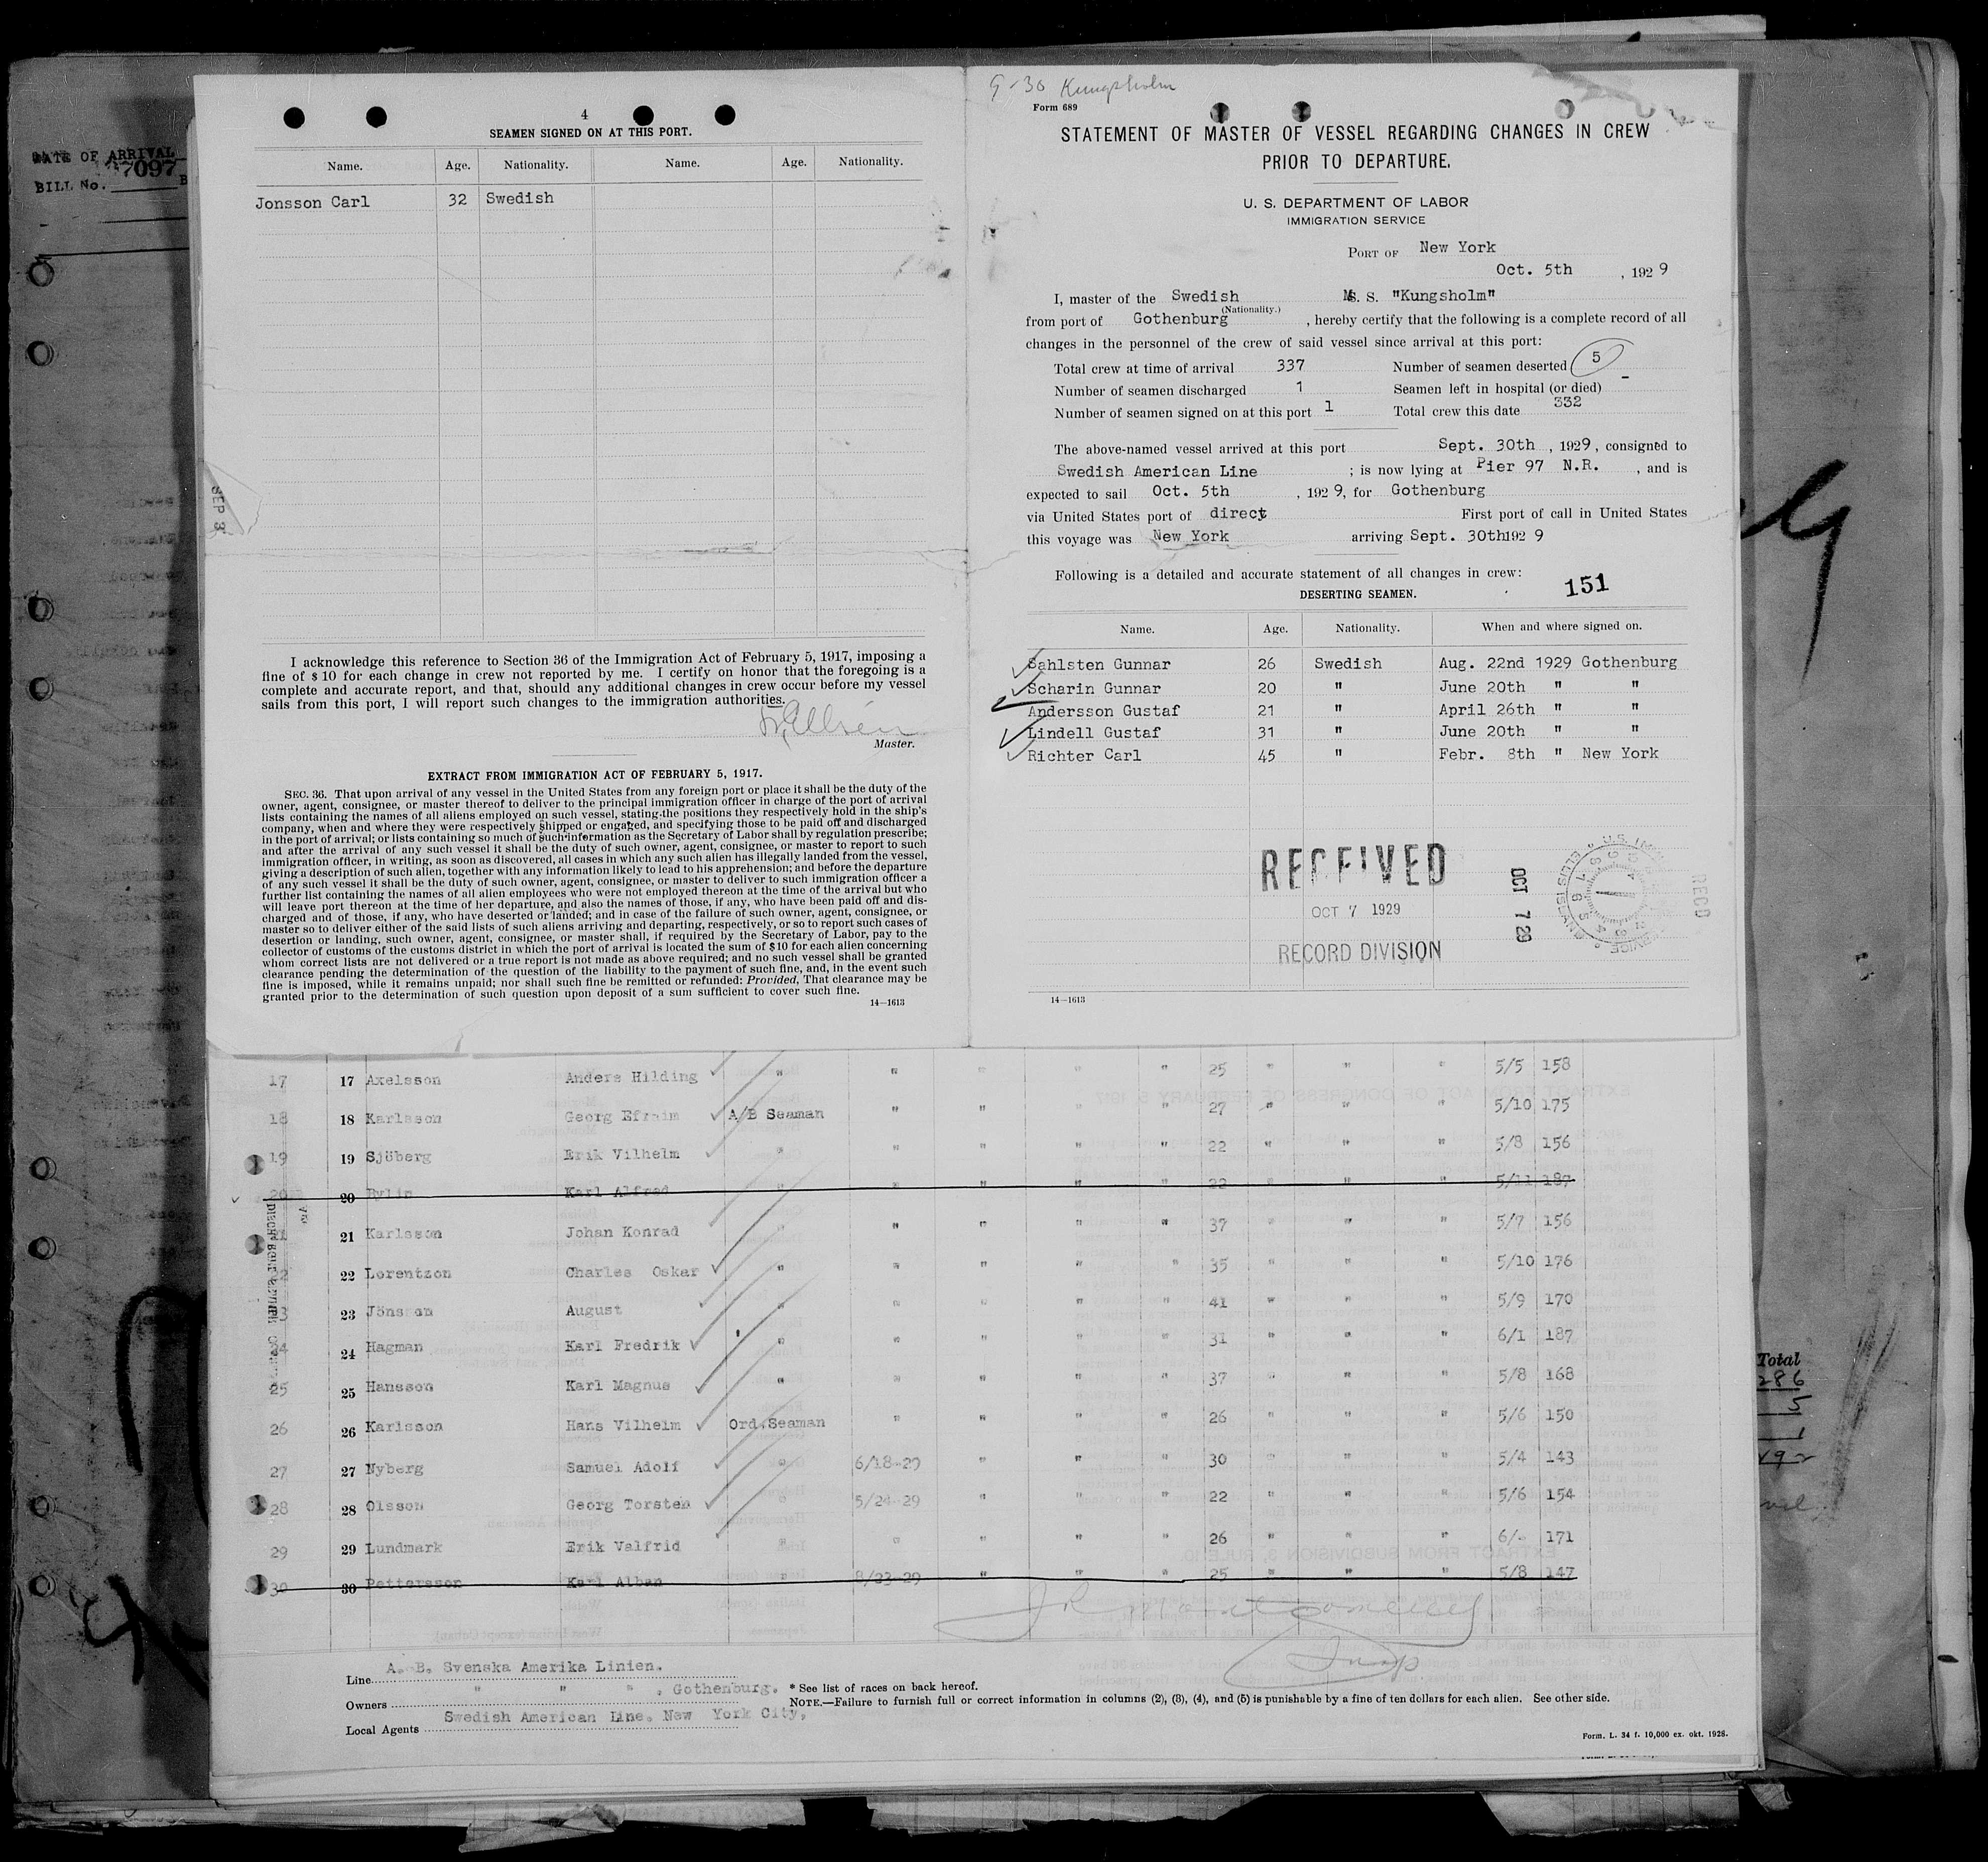 DATE OF ARRIVAL
7097
BILL No.
4
SEAMEN SIGNED ON AT THIS PORT.
Name. Age. Nationality. Name. Age. Nationality.
Jonsson Carl 32 Swedish
SEP 3
I acknowledge this reference to Section 36 of the Immigration Act of February 5, 1917, imposing a
fine of $10 for each change in crew not reported by me. I certify on honor that the foregoing is a
complete and accurate report, and that, should any additional changes in crew occur before my vessel
sails from this port, I will report such changes to the immigration authorities.
Master.
EXTRACT FROM IMMIGRATION ACT OF FEBRUARY 5, 1917.
SEC. 36. That upon arrival of any vessel in the United States from any foreign port or place it shall be the duty of the
owner, agent, consignee, or master thereof to deliver to the principal immigration officer in charge of the port of arrival
lists containing the names of all aliens employed on such vessel, stating the positions they respectively hold in the ship's
company, when and where they were respectively shipped or engaged, and specifying those to be paid off and discharged
in the port of arrival; or lists containing so much of such information as the Secretary of Labor shall by regulation prescribe;
and after the arrival of any such vessel it shall be the duty of such owner, agent, consignee, or master to report to such
immigration officer, in writing, as soon as discovered, all cases in which any such alien has illegally landed from the vessel,
giving a description of such alien, together with any information likely to lead to his apprehension; and before the departure
of any such vessel it shall be the duty of such owner, agent, consignee, or master to deliver to such immigration officer a
further list containing the names of all alien employees who were not employed thereon at the time of the arrival but who
will leave port thereon at the time of her departure, and also the names of those, if any, who have been paid off and dis-
charged and of those, if any, who have deserted or landed; and in case of the failure of such owner, agent, consignee, or
master so to deliver either of the said lists of such aliens arriving and departing, respectively, or so to report such cases of
desertion or landing, such owner, agent, consignee, or master shall, if required by the Secretary of Labor, pay to the
collector of customs of the customs district in which the port of arrival is located the sum of $10 for each alien concerning
whom correct lists are not delivered or a true report is not made as above required; and no such vessel shall be granted
clearance pending the determination of the question of the liability to the payment of such fine, and, in the event such
fine is imposed, while it remains unpaid; nor shall such fine be remitted or refunded: Provided, That clearance may be
granted prior to the determination of such question upon deposit of a sum sufficient to cover such fine.
14—1613
9-30 Kungsholm
Form 689
STATEMENT OF MASTER OF VESSEL REGARDING CHANGES IN CREW
PRIOR TO DEPARTURE.
U. S. DEPARTMENT OF LABOR
IMMIGRATION SERVICE
PORT OF New York
Oct. 5th , 1929
I, master of the Swedish M. S. "Kungsholm"
(Nationality.)
from port of Gothenburg , hereby certify that the following is a complete record of all
changes in the personnel of the crew of said vessel since arrival at this port:
Total crew at time of arrival 337 Number of seamen deserted 5
Number of seamen discharged 1 Seamen left in hospital (or died) -
Number of seamen signed on at this port 1 Total crew this date 332
The above-named vessel arrived at this port Sept. 30th , 1929, consigned to
Swedish American Line ; is now lying at Pier 97 N.R. , and is
expected to sail Oct. 5th , 1929, for Gothenburg
via United States port of direct First port of call in United States
this voyage was New York arriving Sept. 30th 1929
Following is a detailed and accurate statement of all changes in crew:
DESERTING SEAMEN.
151
Name. Age. Nationality. When and where signed on.
Sahlsten Gunnar 26 Swedish Aug. 22nd 1929 Gothenburg
Scharin Gunnar 20 " June 20th " "
Andersson Gustaf 21 " April 26th " "
Lindell Gustaf 31 " June 20th " "
Richter Carl 45 " Febr. 8th " New York
RECEIVED
OCT 7 1929
RECORD DIVISION
OCT 7 29
RECD
14—1613
17 17 Axelsson Anders Hilding " " " " " 25 " " " 5/5 158
18 18 Karlsson Georg Efraim A/B Seaman " " " " 27 " " " 5/10 175
19 19 Sjöberg Erik Vilhelm " " " " " 22 " " " 5/8 156
20 20 Karl Alfred " " " " " 22 " " " 5/11 187
21 Karlsson Johan Konrad " " " " " 37 " " " 5/7 156
22 Lorentzon Charles Oskar " " " " " 35 " " " 5/10 176
23 Jönsson August " " " " " 41 " " " 5/9 170
24 24 Hagman Karl Fredrik " " " " " 31 " " " 6/1 187
25 25 Hansson Karl Magnus " " " " " 37 " " " 5/8 168
26 26 Karlsson Hans Vilhelm Ord.Seaman " " " " 26 " " " 5/6 150
27 27 Nyberg Samuel Adolf " 6/18-29 " " " 30 " " " 5/4 143
28 28 Olsson Georg Torsten " 5/24-29 " " " 22 " " " 5/6 154
29 29 Lundmark Erik Valfrid " " " " " 26 " " " 6/- 171
30 30 Pettersson Karl Alban " 8/23-29 " " " 25 " " " 5/8 147
J R Montgomery
Insp
Line A. B. Svenska Amerika Linien.
Owners " " " , Gothenburg.
Local Agents Swedish American Line. New York City.
* See list of races on back hereof.
NOTE.—Failure to furnish full or correct information in columns (2), (3), (4), and (5) is punishable by a fine of ten dollars for each alien. See other side.
Form. L. 34 f. 10,000 ex. okt. 1928.
Total
286